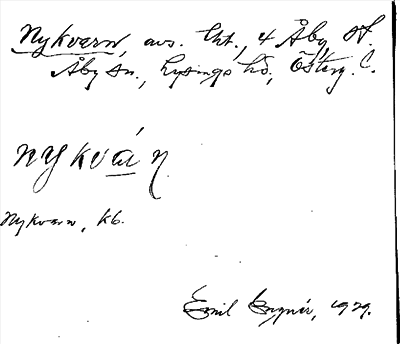 Nykvarn, avs. lht., 4 Åby, St.
Åby sn., Lysings hd, Österg. l.
nykván
Nykvarn, kb.
Emil 1929.